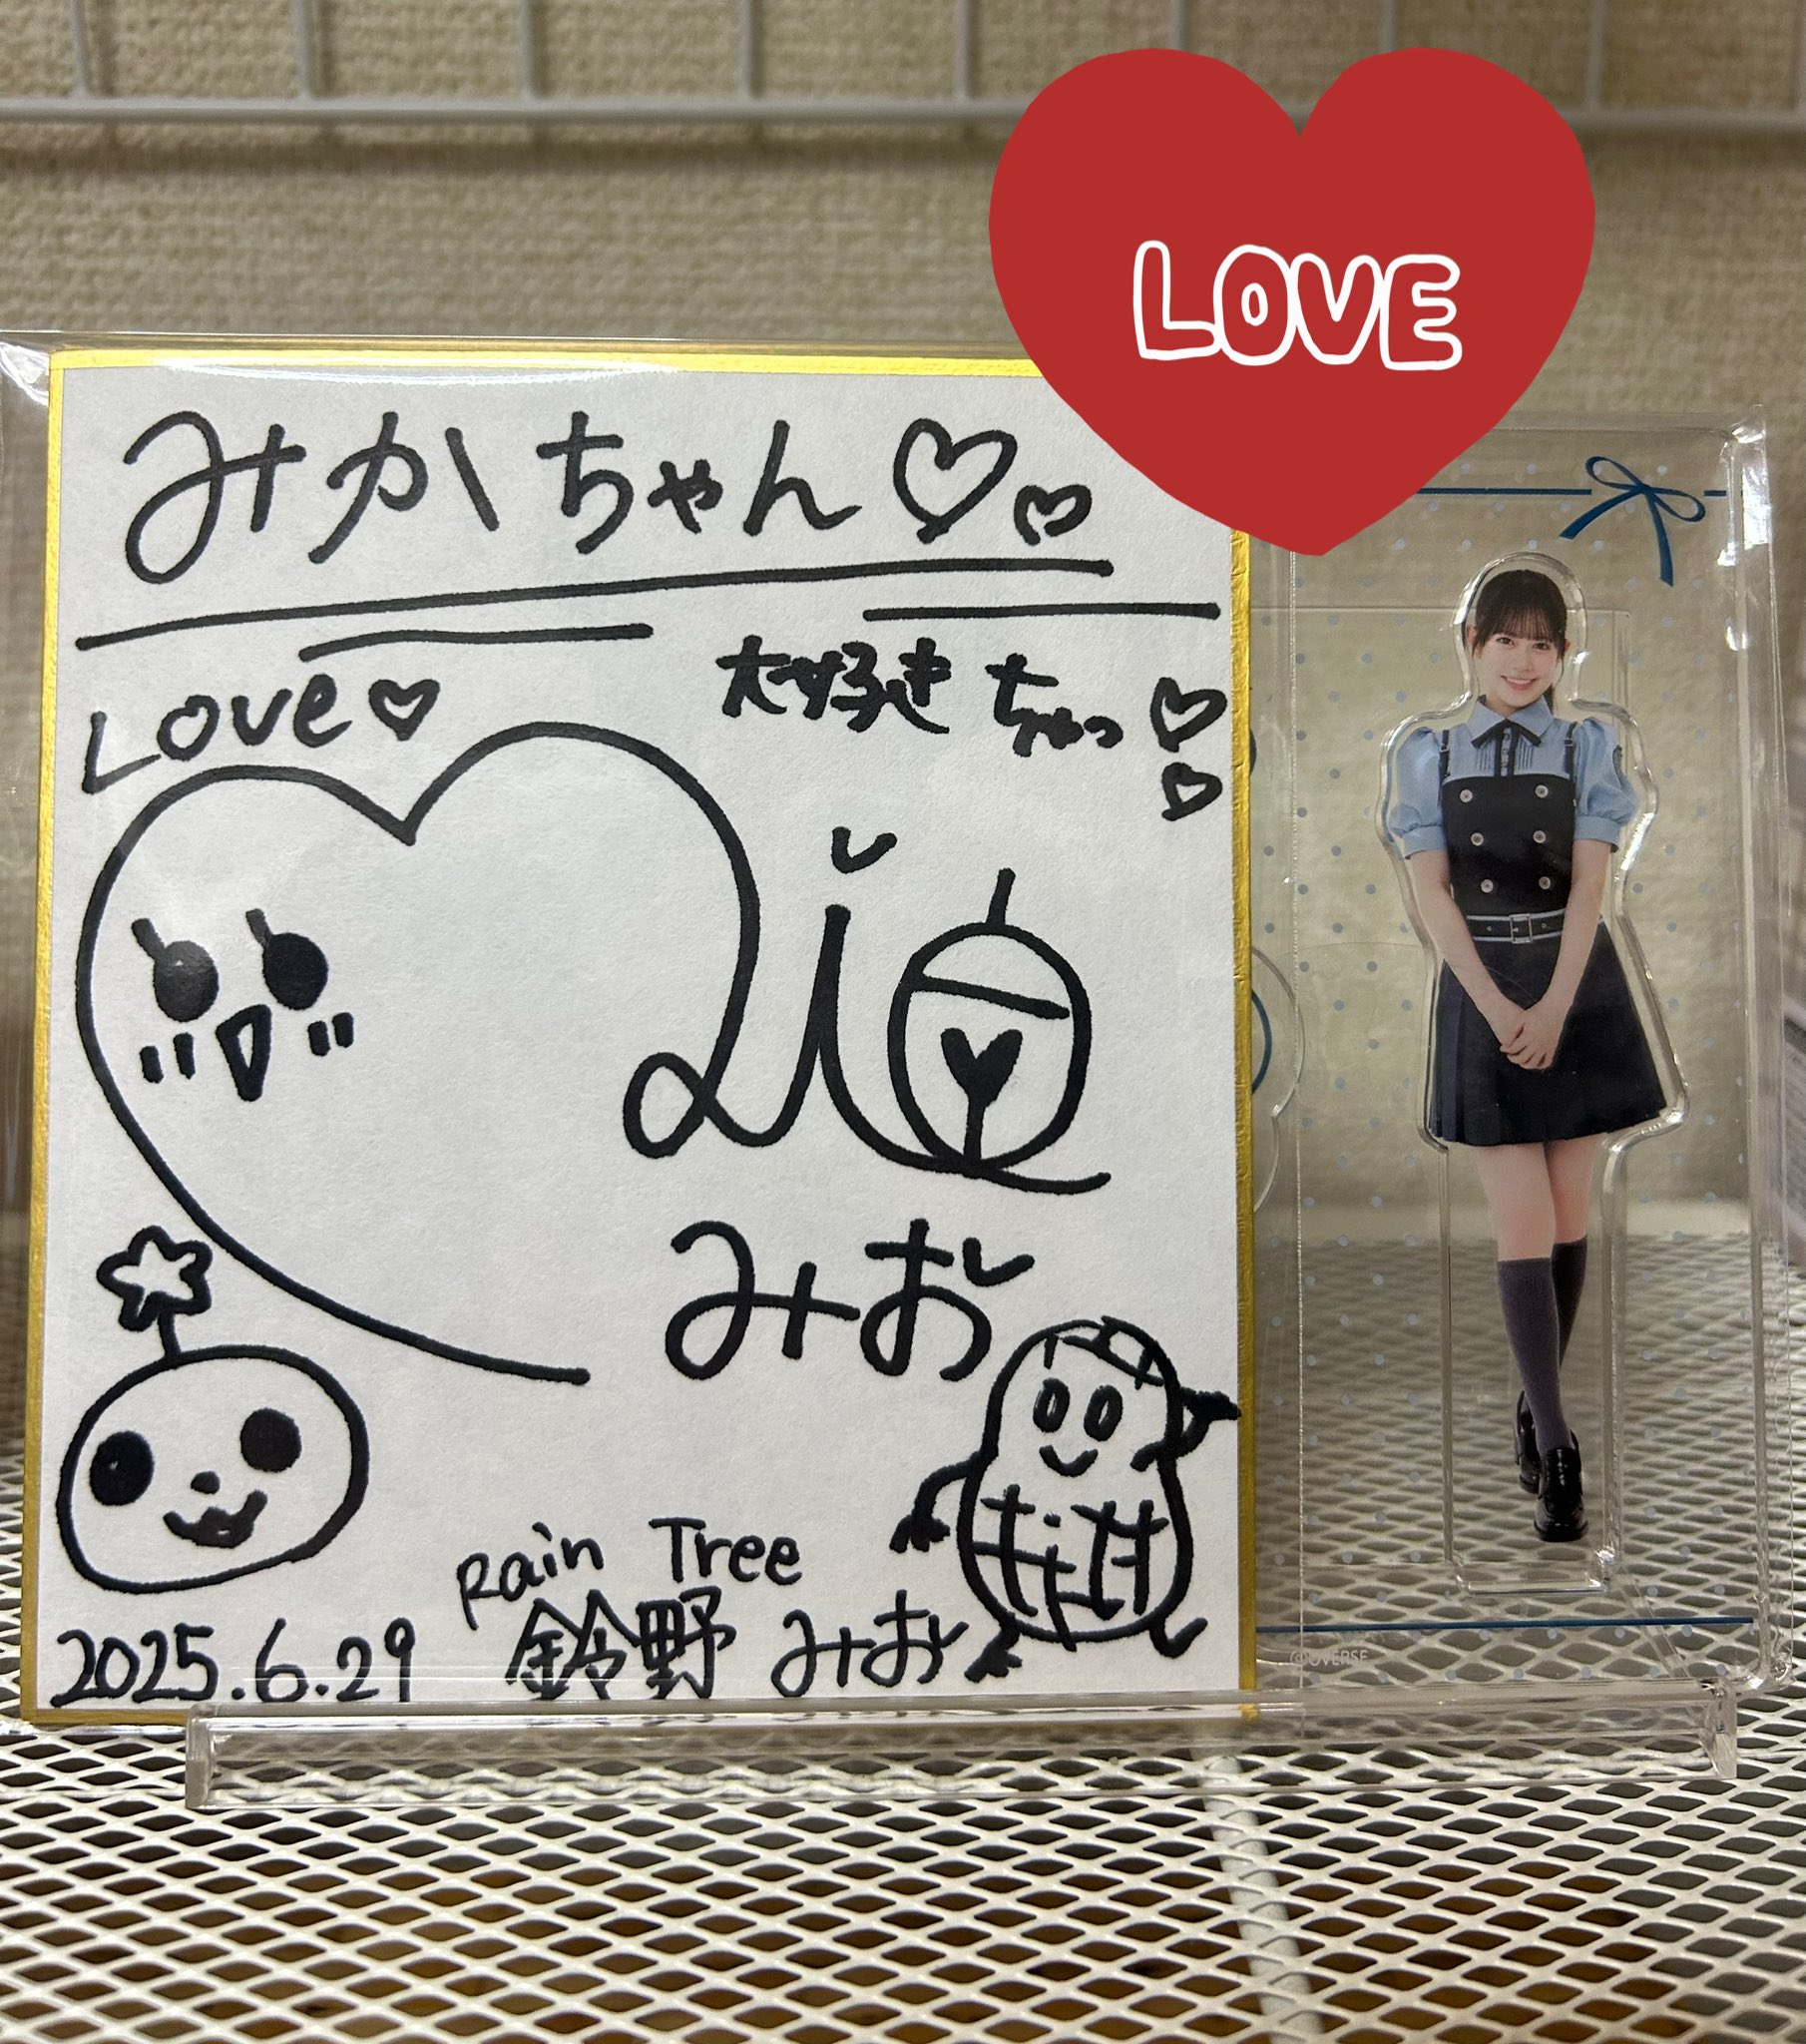 LOVE
みかちゃん♡♡
Love♡
大好き ちゅっ♡♡
みお
Rain Tree
2025.6.29 鈴野みお
©OVERSE